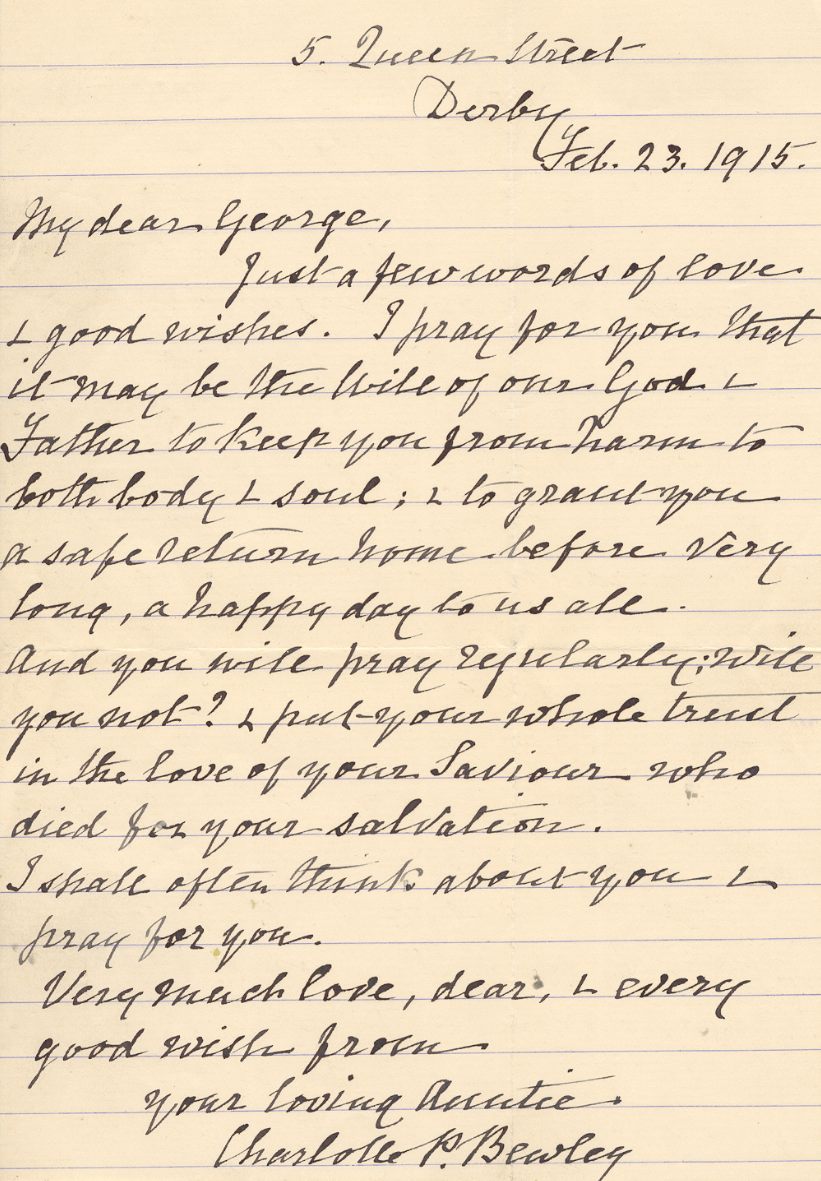 5. Queen Street
Derby
Feb. 23. 1915.
My dear George,
Just a few words of love
& good wishes. I pray for you that
it may be the Will of our God &
Father to keep you from harm to
both body & soul; & to grant you
a safe return home before very
long, a happy day to us all.
And you will pray regularly; will
you not? & put your whole trust
in the love of your Saviour who
died for your salvation.
I shall often think about you &
pray for you.
Very much love, dear, & every
good wish from
your loving Auntie.
Charlotte P. Bewley